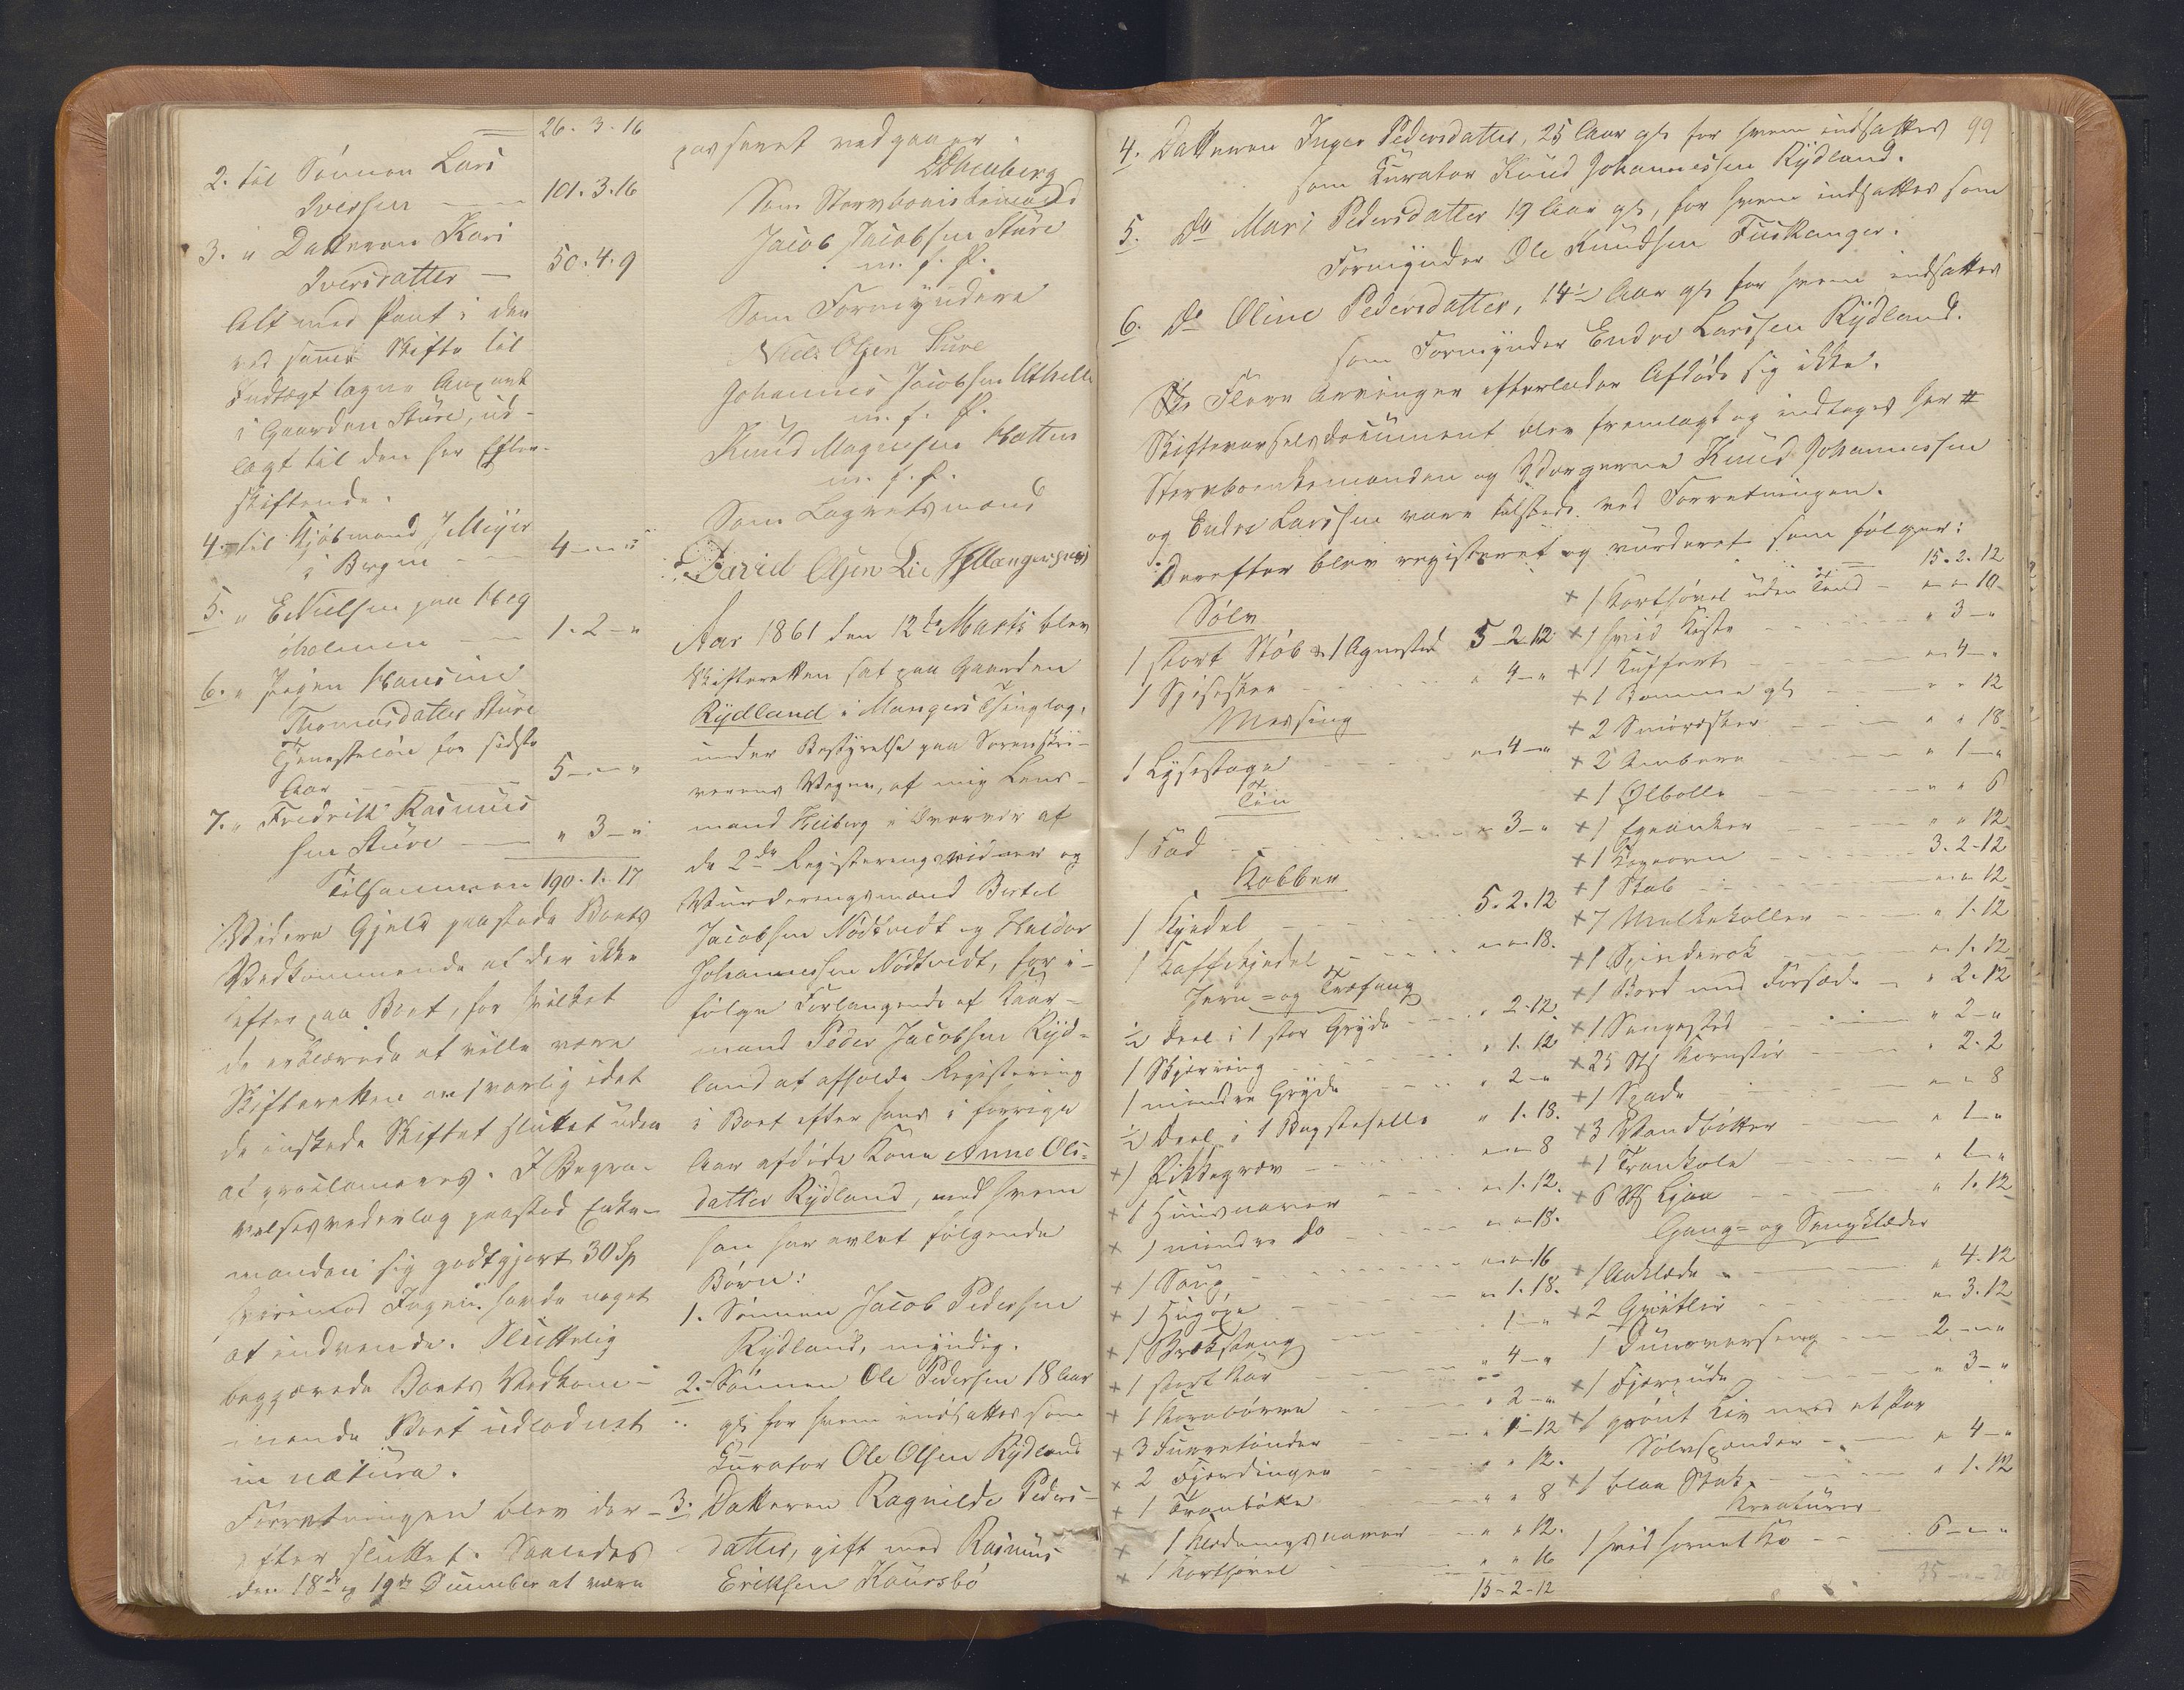 26. 3. 16
2. til Sønnen Lars
Iversen — 101. 3. 16
3. " Datteren Kari
Iversdatter — 50. 4. 9
Alt med Pant i den
ved samme Skifte til
Indtægt tagne Anpart
i Gaarden Sture, ud-
lagt til den her Efter-
skiftende.
4. til Kjøbmand J Meyer
i Bergen — 4 — "
5. " E Nielsen paa Heg
øholmen — 1. 2 — "
6. " Pigen Hansine
Thomasdatter Sture
Tjenesteløn for sidste
Aar — 5 — "
7. " Fredrik Rasmus
sen Sture — " 3 — "
Tilsammen 190. 1. 17
Videre Gjeld paastode Boets
Vedkommende at der ikke
hefter paa Boet, for hvilket
de erklærede at ville være
Skifteretten ansvarlig idet
de ønskede Skiftet sluttet uden
at proclameres. I Begra-
velsesvederlag paastod Enke-
manden sig godtgjort 30 Sp
hvorimod Ingen havde noget
at indvende. Sluttelig
begjærede Boets Vedkom-
mende Boet udloddet
in natura.
Forretningen blev der-
efter sluttet. Saaledes
den 18de og 19de December at være
passeret vedgaaer
D Heiberg
Som Stervboenkemand
Jacob Jacobsen Sture
m. f. P.
Som Formyndere
Niels Olsen Sture
Johannes Jacobsen
m. f. P.
Knud Magnesen Hatten
m. f. P.
Som Lagretsmænd
David Olsen Lie
Aar 1861 den 12te Marts blev
Skifteretten sat paa Gaarden
Rydland i Mangers Thinglag,
under Bestyrelse paa Sorenskri-
verens Vegne, af mig Lens-
mand Heiberg i Overvær af
de 2de Registreringsvidner og
Vurderingsmænd Bertel
Jacobsen Nødtvedt og Haldor
Johannessen Nødtvedt, for i-
følge Forlangende af Kaar-
mand Peder Jacobsen Ryd-
land at afholde Registrering
i Boet efter hans i forrige
Aar afdøde Kone Anne Ols-
datter Rydland, med hvem
han har avlet følgende
Børn:
1. Sønnen Jacob Pedersen
Rydland, myndig.
2. Sønnen Ole Pedersen 18 Aar
gl for hvem indsattes som
Curator Ole Olsen Rydland
3. Datteren Ragnilde Peders-
datter, gift med Rasmus
Eriksen Kaursbø
99
4. Datteren Inger Pedersdatter, 25 Aar gl for hvem indsattes
som Curator Knud Johannessen Rydland.
5. Do Mari Pedersdatter 19 Aar gl, for hvem indsattes som
Formynder Ole Knudsen Fuskanger.
6. Do Oline Pedersdatter, 14½ Aar gl for hvem indsattes
som Formynder Endre Larssen Rydland.
Flere Arvinger efterlader Afdøde sig ikke.
Skiftevarselsdocument blev fremlagt og indtages her #
Stervboenkemanden og Værgerne Knud Johannessen
og Endre Larssen vare tilstede ved Forretningen.
Derefter blev registreret og vurderet som følger:
Sølv
1 stort Støb & 1 Agnested 5 — 2. 12.
1 Spiseskee " 4 — "
Messing
1 Lysestage " 4 — "
Tin
1 Fad " 3 — "
Kobber
1 Kjedel 5. 2. 12
1 Kaffekjedel " " 18.
Jern- og Træfang
½ Deel i 1 stor Gryde " 2. 12.
1 Skjæring " 1. 12
1 mindre Gryde " 2 — "
½ Deel i 1 Bagstehelle " 1. 18.
+ 1 " " 8
+ 1 Huusnaver " 1. 12.
+ 1 mindre do " " 18.
+ 1 Saug " " 16
+ 1 Hugøxe " 1. 18.
+ 1 Brækstang 1 — "
+ 1 stort Kar " 4 — "
+ 1 Kornbørre " 2 — "
+ 3 Furretønder " 1 — 12
+ 2 Fjerdinger " " 12.
+ 1 " " 8
+ 1 Klædningsnaver " " 12.
+ 1 Korthøvel " " 16
15 — 2 — 12
15. 2. 12
+ 1 Korthøvel uden Tand " " 10
+ 1 hvid Kiste " 3 — "
+ 1 Kuffert " 4 — "
+ 1 Bomme gl " " 12
+ 2 Smøræsker " " 18
+ 2 Ambere " 1 — "
+ 1 Ølbolle " " 6
+ 1 " " 12
+ 1 3. 2. 12
+ 1 Stab " " 12
+ 7 Melkekoller " 1. 12
+ 1 Spinderok " 1. 12
+ 1 Bord med Forsæde " 2. 12
+ 1 Sengested " 2 — "
+ 25 St Kornstør " 2. 2
+ 1 Spade " " 8
+ 3 Vandbøtter " 1 — "
+ 1 Trankole " 1 — "
+ 6 St Ljaa " 1. 12
Gang- og Sengklæder
+ 1 Aaklæde " 4. 12
+ 2 " 3. 12
1 Duunoverseng 2 — "
+ 1 Fjærpude " 3 — "
+ 1 grønt Liv med et Par
Sølvspender " 4 — "
+ 1 blaa Stak " 1. 12
Kreaturer
1 hvid hornet Ko 6 — "
35 — " — 20